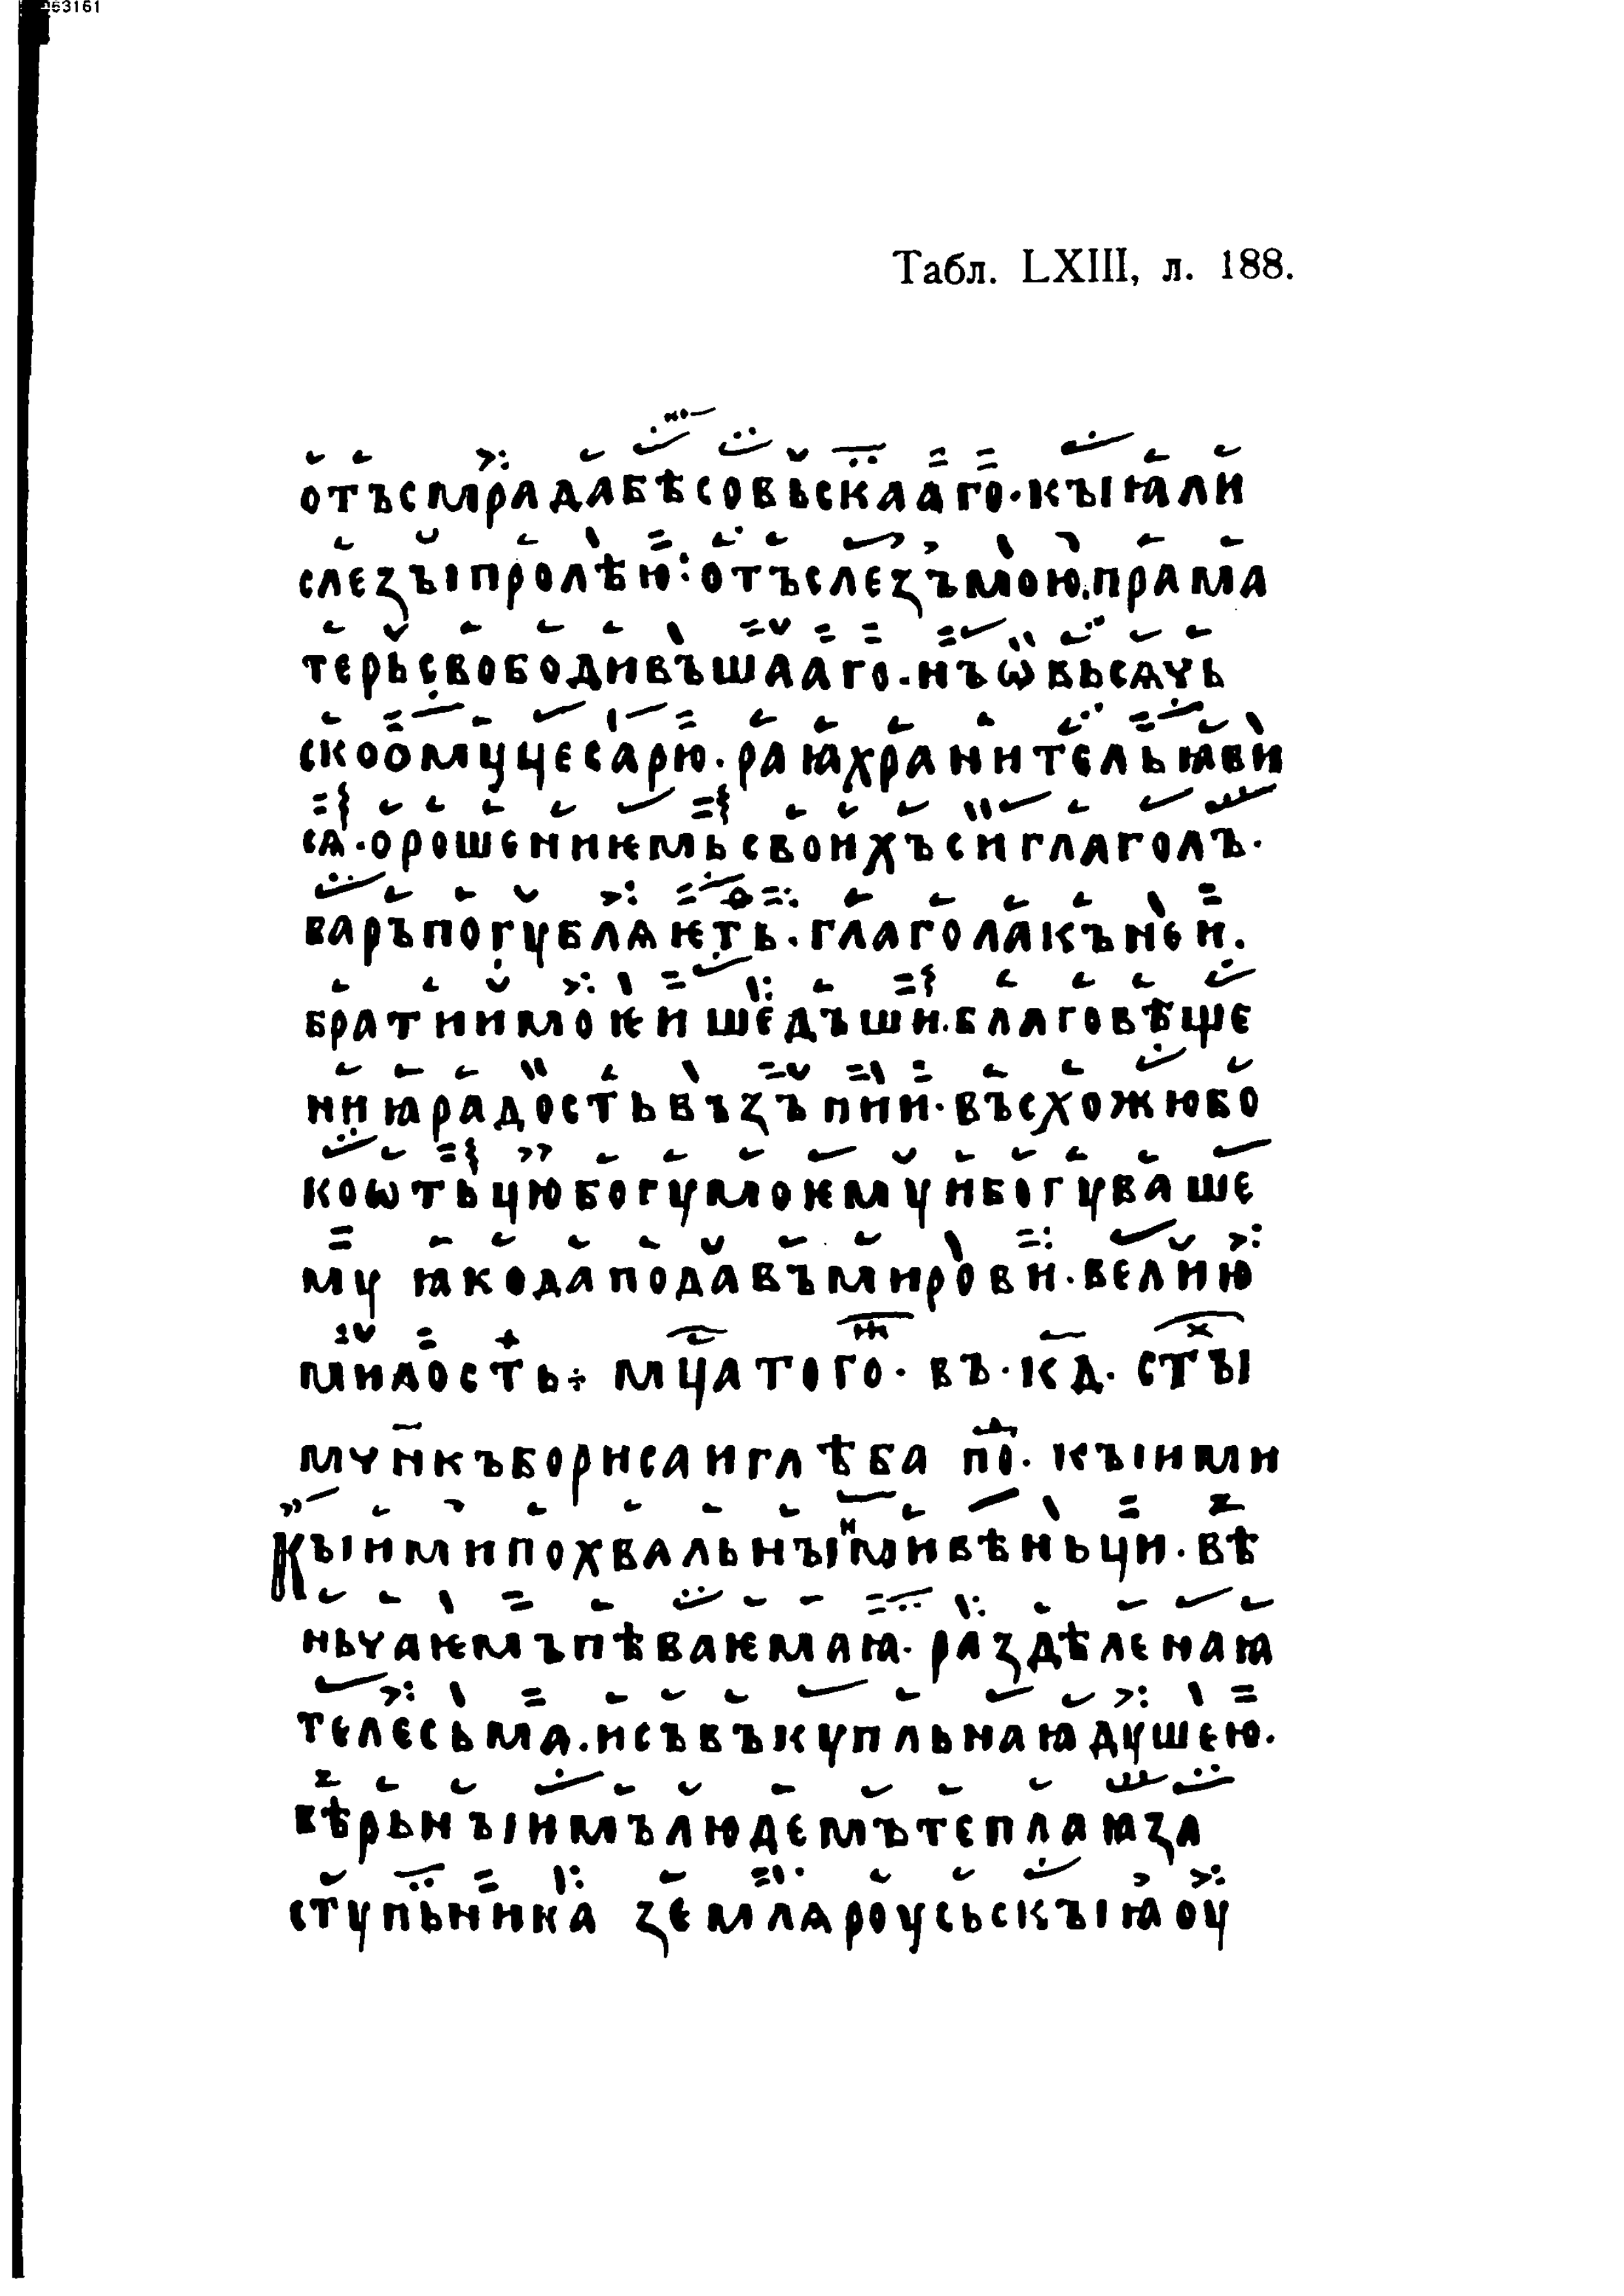 053161
Табл. LXIII, л. 188.
отъсмрадабѣсовьскааго·кыꙗли
слеꙁыпролѣю:отъслеꙁъмою.прама
терьсвободивъшааго·нъѡвьсѧчь
скоомуцесарю·раꙗхранительꙗви
сѧ·орошениѥмьсвоихъсиглаголъ·
варъпогублѧѥть·глаголакънеи.
братиимоѥишедъши·благовѣще
ниꙗрадостьвъꙁъпии·въсхожюбо
коѡтьцюбогумоѥмуибогуваше
му ꙗкодаподавъмирови·велию
милость÷ мц҃атого·въ·к҃д·ст҃ы
мчн҃къборисаиглѣба по·кыими
Кыимипохвальныимивѣньци·вѣ
ньчаѥмъпѣваѥмаꙗ·раꙁдѣленаꙗ
телесьма·исъвъкупльнаꙗдушею·
вѣрьныимълюдемътеплаꙗꙁа
ступьника ꙁемлѧроусьскыꙗоу